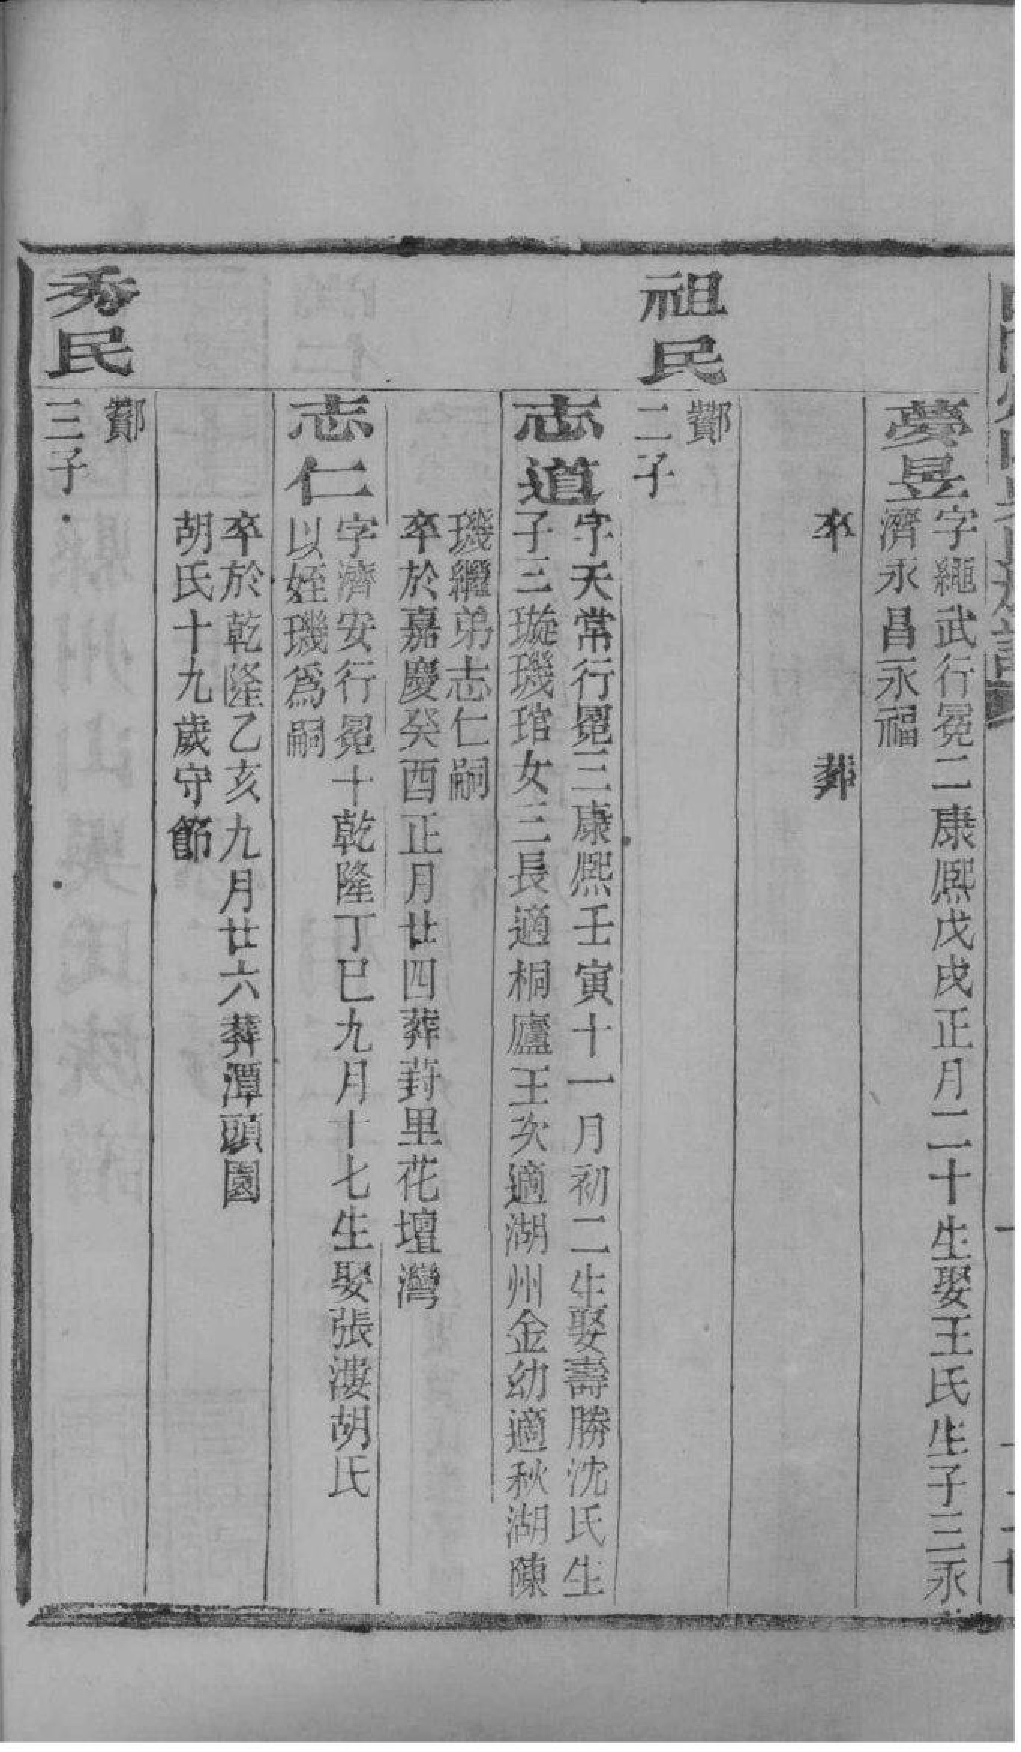 夢昱
字繩武行冕二康熙戊戌正月二十生娶王氏生子三永
濟永昌永福
卒 葬
祖民
酇
二子
志道
字天常行冕三康熙壬寅十一月初二生娶壽勝沈氏生
子三璇璣琯女三長適桐廬王次適湖州金幼適秋湖陳
璣繼弟志仁嗣
卒於嘉慶癸酉正月廿四葬葑里花壇灣
志仁
字濟安行冕十乾隆丁巳九月十七生娶張漊胡氏
以姪璣爲嗣
卒於乾隆乙亥九月廿六葬潭頭園
胡氏十九歲守節
秀民
酇
三子